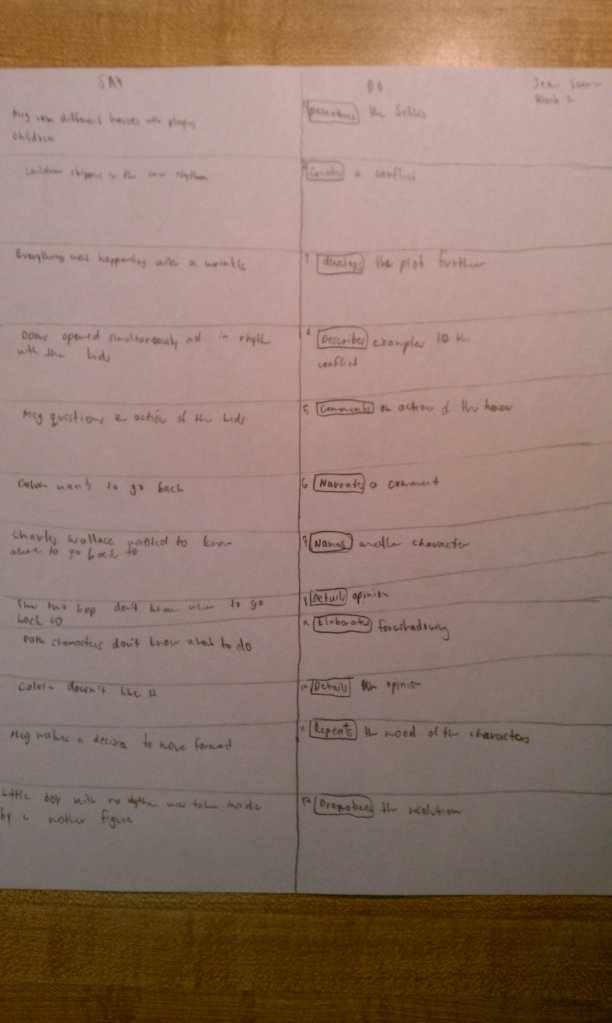 SAY
DO
Block 2
Meg saw different houses with playing
children
Describes the
children skipped in the same rhythm
Create a conflict
Everything was happening with a wrinkle
develops the plot further
Doors opened simultaneously and in rhythm
with the kids
4 Describes examples to the
conflict
Meg questions the action of the kids
5 Comments on action of the
Calvin wants to go back
6 Narrates a comment
Charles Wallace wanted to know
where to go back to
7 Names another character
The two don't know where to go
back to
8 Details opinion
Both characters don't know what to do
Elaborates foreshadowing
Calvin doesn't like it
Details the opinion
Meg makes a decision to move forward
Repeats the mood of the characters
Little boy with no rhythm was taken inside
by a mother figure
12 Dramatizes the resolution